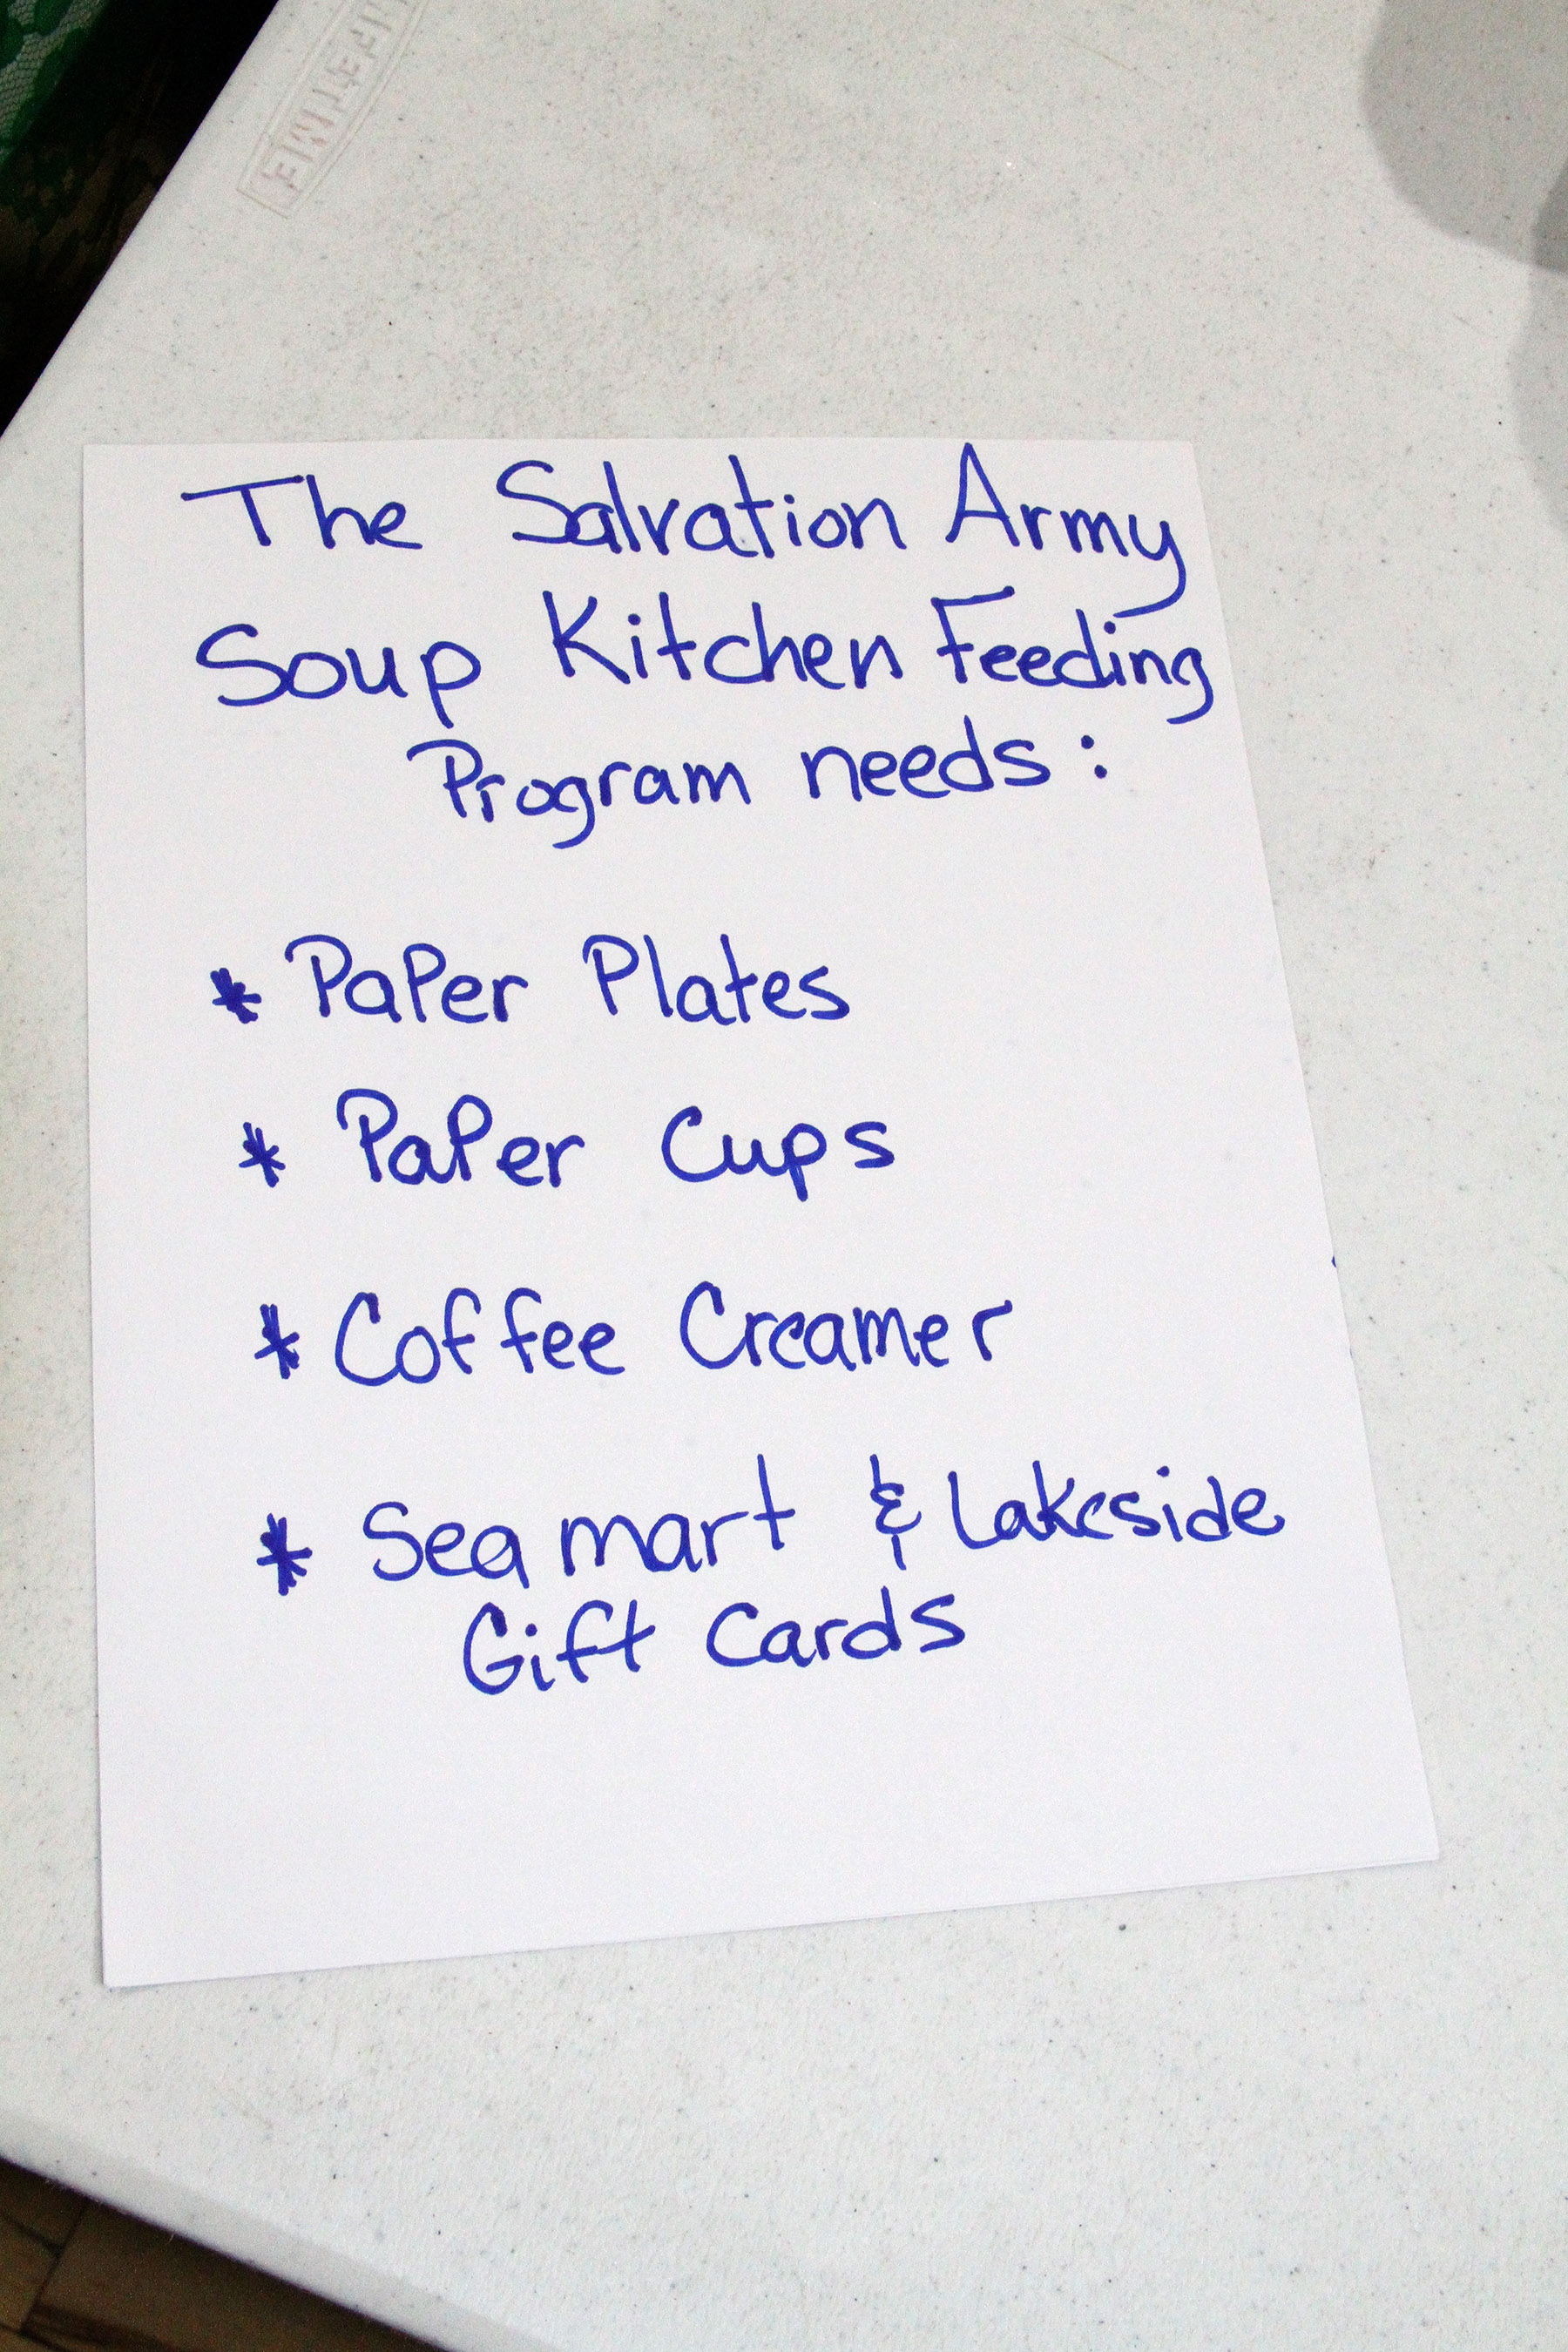 LIFETIME
The Salvation Army
Soup Kitchen Feeding
Program needs :
* PaPer Plates
* PaPer Cups
* Coffee Creamer
* Sea mart & Lakeside
Gift Cards